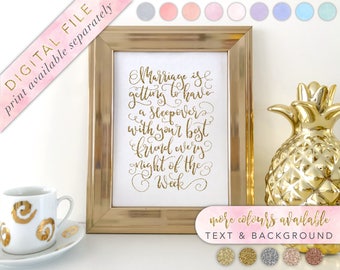 DIGITAL FILE
print available separately
Marriage is
getting to have
a sleepover
with your best
friend every
night of the
week
more colours available
TEXT & BACKGROUND